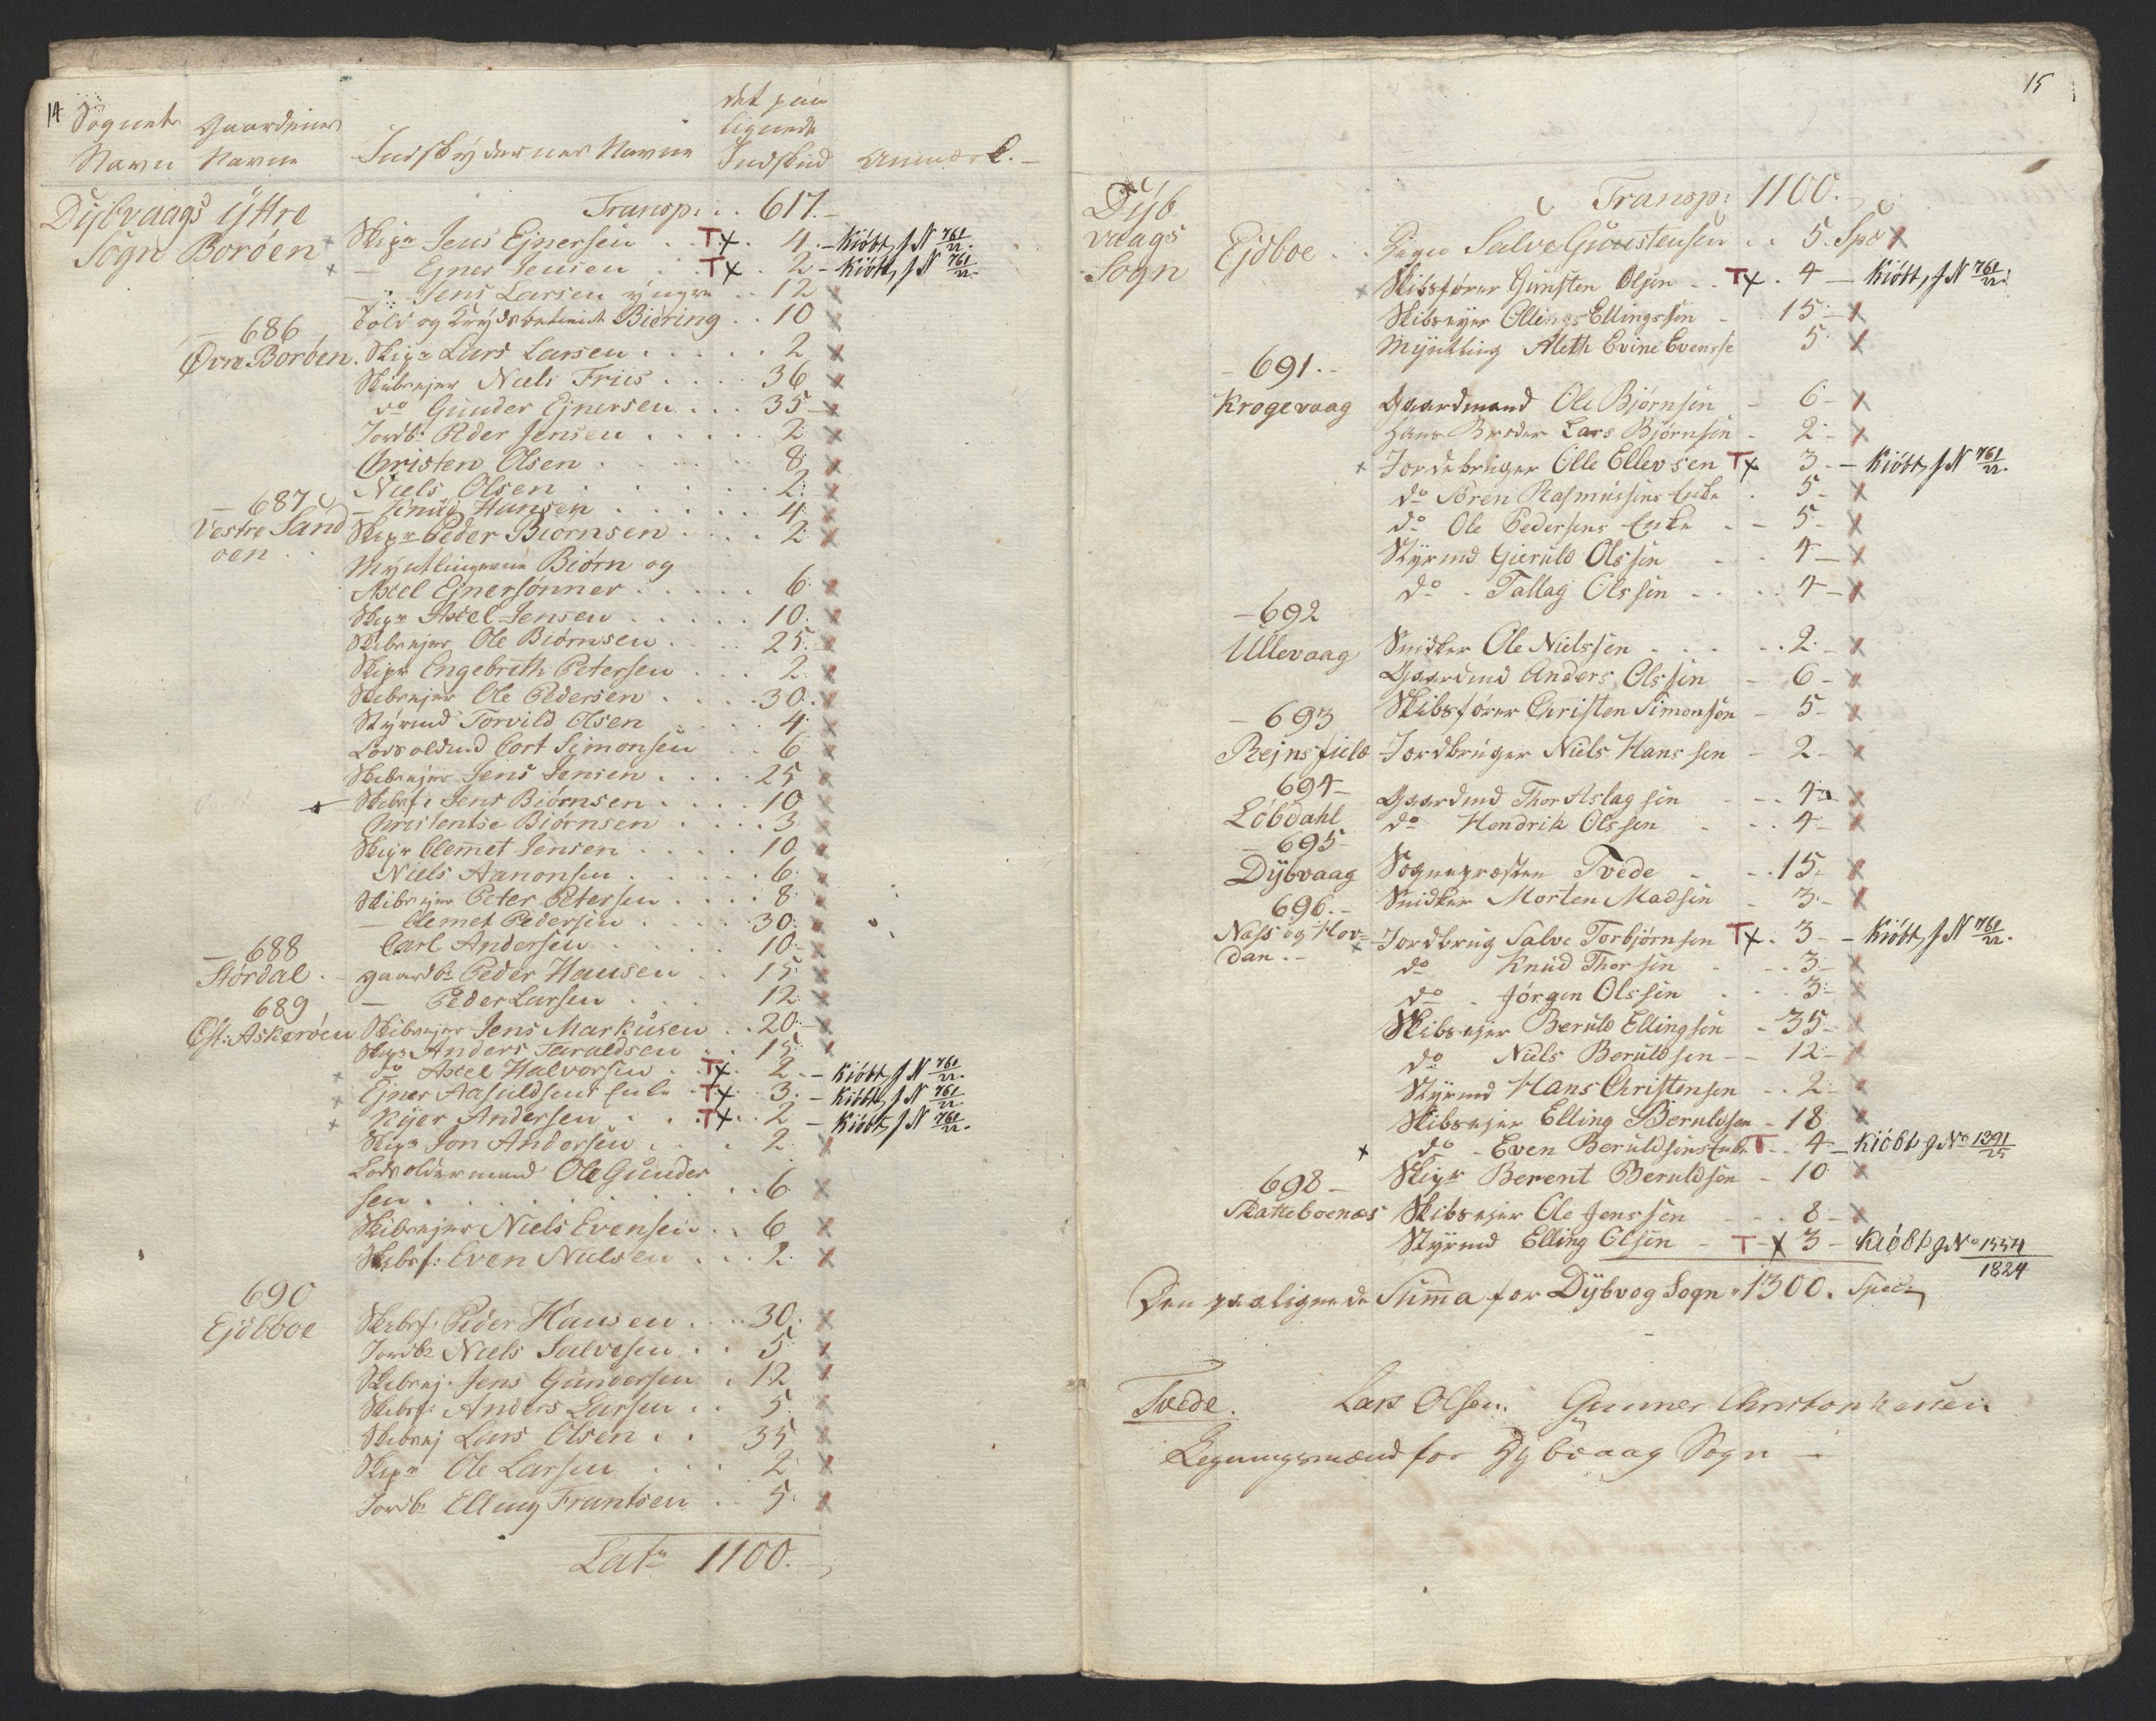 14 Sognets Gaardenes det paa
lignede
Navn Navne Indskydernes Navne Indskud Anmærk.
Dybvaags Ÿttre Transp: 617.
Sogn Borøen Skipr Jens Ejnersen T x 4 - Kiøbt, J N 761/22.
— Ejner Jensen T x 2 - Kiøbt, J N 761/22.
— Jens Larsen ÿngre 12
Told og Krÿdsbetient Biøring 10
— 686
Øvre Borøen. Skipr Lars Larsen 2
Skibsejer Niels Friis 36
do Gunder Ejnersen 35
Jordbr Peder Jensen 2
Christen Olsen 8
Niels Olsen 2
— 687 — Knud Hansen 4
Vestre Sand Skipr Peder Biørnsen 2
øen
Mÿntlingerne Biørn og
Axel Ejnersønner 6
Skipr Axel Jensen 10
Skibsejer Ole Biørnsen 25
Skipr Engebreth Petersen 2
Skibsejer Ole Pedersen 30
Stÿrmd Torvild Olsen 4
Lodsoldmd Cort Simonsen 6
Skibsejer Jens Jensen 25
Skibsf: Jens Biørnsen 10
Christentse Biørnsen 3
Skipr Clemet Jensen 10
Niels Aanonsen 6
Skibsejer Peter Petersen 8
— Clemet Pedersen 30
— 688 Carl Andersen 10
Størdal. — gaardbr Peder Hansen 15
689 — Peder Larsen 12
Øst: Askerøen Skibsejer Jens Markusen 20
Skipr Anders Taraldsen 15
x do Axel Halvorsen T x 2 - Kiøbt, J N 761/22.
x Ejner Aasuldsens Enke T x 3 - Kiøbt, J N 761/22.
x Reÿer Andersen T x 2 - Kiøbt, J N 761/22.
Skipr Jon Andersen 2
Lodsoldermand Ole Gunder
sen 6
Skibsejer Niels Evensen 6
Skibsf: Even Nielsen 2
690
Ejdbboe Skibsf: Peder Hansen 30
Jordbr Niels Salvesen 5
Skibsej. Jens Gundersen 12
Skibsf: Anders Larsen 5
Skibsej Lars Olsen 35
Skipr Ole Larsen 2
Jordbr Elling Frantsen 5
Late 1100.
15
Dÿb Transp: 1100.
vaags Ejdboe Salve Gunstensen 5. Spd
Sogn x Skibsfører Gunsten Olsen T x 4 - Kiøbt, J N 761/22.
Skibsejer Ellingssen 15
Mÿntling Aleth Evine Evensse 5
— 691. —
Krogevaag Gaardmand Ole Bjørnsen 6
Hans Broder Lars Bjørnsen 2
x Jordebruger Olle Ellevsen T x 3 - Kiøbt, J N 761/22.
do Søren Rasmussens Enke 5
do Ole Pedersens Enke 5
Stÿrmd Gieruld Olssen 4
do Tallag Olssen 4
— 692
Ullevaag Snidker Ole Nielssen 2
Gaardmd Anders Olssen 6
— 693 Skibsfører Christen Simonsen 5
Rejnsfield Jordbruger Niels Hanssen 2
694 —
Løbdahl Gaardmd Thor Aslagsen 4
do Hendrik Olssen 4
— 695 —
Dÿbvaag Sognepræsten Tvede 15
696. — Snidker Morten Madsen 3
Næss og Hov= x Jordbrug Salve Torbjørnsen T x 3 - Kiøbt, J N 761/22.
dan. — do Knud Thorsen 3
do Jørgen Olssen 3
Skibsejer Beruld Ellingsen 35
do Niels Beruldsen 12
Stÿrmd Hans Christensen 2
Skibsejer Elling Beruldsen 18
x do Even Beruldsens Enke T 4 - Kiøbt J No 1391/25
698 — Skipr Berent Beruldsen 10
Skatteboenæs Skibsejer Ole Jenssen 8
Stÿrmd Elling Olsen T x 3 - Kiøbt J No 1554/1824
Den paalignede Sum̄a for Dÿbvog Sogn 1300. Specr
Tvede. Lars Olsen. Gunner Christophersen
Legningsmænd for Dybvaag Sogn